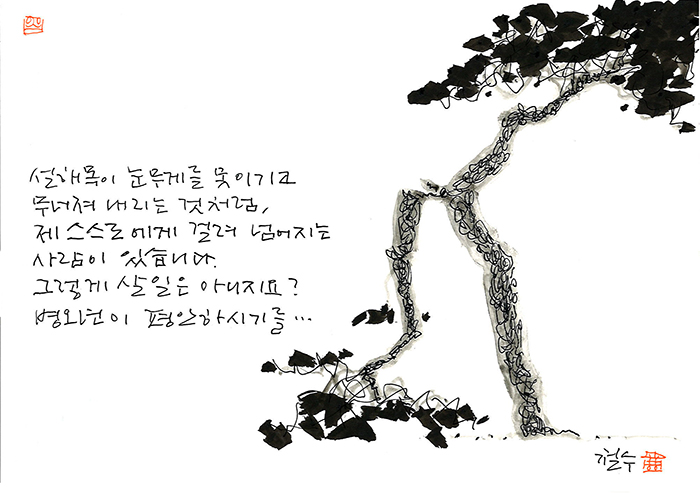 설해목이 눈무게를 못이기고
무너져 내리는 것처럼,
제 스스로에게 걸려 넘어지는
사람이 있습니다.
그렇게 살일은 아니지요?
병와년이 평안하시기를...
철수